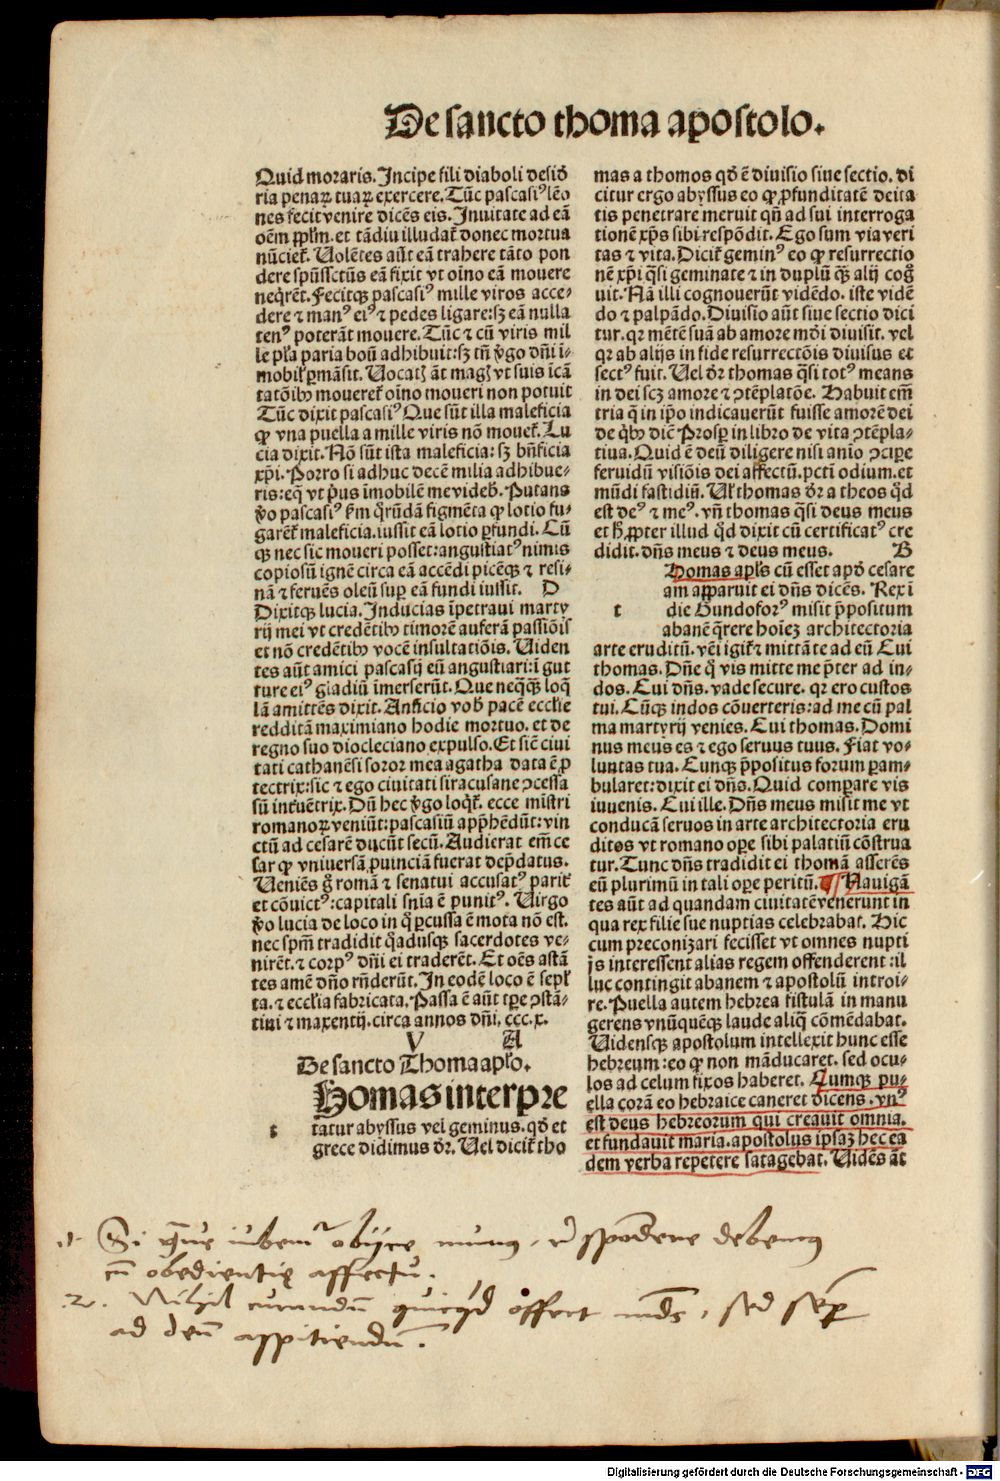 De sancto thoma apostolo.
Quid moraris. Incipe fili diaboli desid̄
ria penaꝝ tuaꝝ exercere. Tūc pascasiꝰ lēo
nes fecit venire dicēs eis. Inuitate ad eā
oēm ppl̄m. et tādiu illudat᷑ donec mortua
nūciet᷑. Uolētes aūt eā trahere tāto pon
dere spūssctūs eā fixit vt oīno eā mouere
neqrēt. Fecitqꝫ pascasiꝰ mille viros acce⸗
dere ⁊ manꝰ eiꝰ ⁊ pedes ligare: sꝫ eā nulla
tenꝰ poterāt mouere. Tūc ⁊ cū viris mil
le pl̄a paria boū adhibuit: sꝫ tn̄ v̄go dn̄i ī⸗
mobil̄ ꝑmāsit.
tatōibꝰ moueret᷑ oīno moueri non potuit
Tūc dixit pascasiꝰ Que sūt illa maleficia
ꝙ vna puella a mille viris nō mouet᷑. Lu
cia dixit. Nō sūt ista maleficia: sꝫ bn̄ficia
xp̄i. Porro si adhuc decē milia adhibue⸗
ris: eq̄ vt p̄us īmobilē me videb̄. Putans
v̄o pascasiꝰ ẜm qrūdā figmēta ꝙ lotio fu⸗
garēt᷑ maleficia. iussit eā lotio ꝑfundi. Cū
qꝫ nec sic moueri posset: angustiatꝰ nimis
copiosū ignē circa eā accēdi picēqꝫ ⁊ resi⸗
nā ⁊ feruēs oleū suꝑ eā fundi iussit. D
Dixitqꝫ lucia. Inducias īpetraui marty
rij mei vt credētibꝰ timorē auferā passiōis
et nō credētibꝰ vocē insultatiōis. Uiden
tes aūt amici pascasij eū angustiari: ī gut
ture eiꝰ gladiū īmerserūt. Que neq̄qꝫ loq̄
lā amittēs dixit. Anūcio vob̄ pacē eccl̄ie
redditā maximiano hodie mortuo. et de
regno suo diocleciano expulso. Et siē ciui
tati cathanēsi soror mea agatha data ē ꝓ
tectrix: sic ⁊ ego ciuitati siracusane ꝯcessa
sū int᷑uētrix. Dū hec v̄go loqt᷑. ecce mīstri
romanoꝝ veniūt: pascasiū app̄hēdūt: vin
ctū ad cesarē ducūt secū. Audierat em̄ ce
sar ꝙ vniuersā ꝓuinciā fuerat dep̄datus.
Ueniēs g̊ romā ⁊ senatui accusatꝰ parit᷑
et cōuictꝰ: capitali sn̄ia ē punitꝰ. Uirgo
v̄o lucia de loco in q̊ ꝑcussa ē mota nō est.
nec spm̄ tradidit q̊adusqꝫ sacerdotes ve⸗
nirēt. ⁊ corpꝰ dn̄i ei traderēt. Et oēs astā
tes amē dn̄o rn̄derūt. In eodē loco ē sepl̄
ta. ⁊ eccl̄ia fabricata. Passa ē aūt tꝑe ꝯstā⸗
tini ⁊ maxentij. circa annos dn̄i. ccc.x.
V A
De sancto Thoma apl̄o.
t
Homas interpre
tatur abyssus vel geminus. qd̄ et
grece didimus dr̄. Uel dicit᷑ tho
mas a thomos qd̄ ē diuisio siue sectio. di
citur ergo abyssus eo ꝙ ꝓfunditatē deita
tis penetrare meruit qn̄ ad sui interroga
tionē xp̄s sibi respōdit. Ego sum via veri
tas ⁊ vita. Dicit᷑ geminꝰ eo ꝙ resurrectio
nē xp̄i q̄si geminate ⁊ in duplū qꝫ alij cog̊
uit. Nā illi cognouerūt vidēdo. iste vidē
do ⁊ palpādo. Diuisio aūt siue sectio dici
tur. qꝛ mētē suā ab amore mūdi diuisit. vel
qꝛ ab alijs in fide resurrectōis diuisus et
sectꝰ fuit. Uel dr̄ thomas q̄si totꝰ means
in dei scꝫ amore ⁊ ꝯtēplatōe. Habuit em̄
tria q̄ in ip̄o indicauerūt fuisse amorē dei
de qbꝰ diē Prosꝑ in libro de vita ꝯtēpla⸗
tiua. Quid ē deū diligere nisi aīo ꝯciꝑe
feruidū visiōis dei affectū. pctī odium. et
mūdi fastidiū. Ul̄ thomas dr̄ a theos q̊d
est deꝰ ⁊ meꝰ. vn̄ thomas q̄si deus meus
et h̄ ꝓpter illud q̊d dixit cū certificatꝰ cre
didit. dn̄s meus ⁊ deus meus. B
t
Homas apl̄s cū esset apd̄ cesare
am apparuit ei dn̄s dicēs. Rex ī
die Gundoforꝰ misit p̄positum
abanē q̄rere hoīeꝫ architectoria
arte eruditū. vēi igit᷑ ⁊ mittā te ad eū Cui
thomas. Dn̄e q̊ vis mitte me p̄ter ad in⸗
dos. Cui dn̄s. vade secure. qꝛ ero custos
tui. Cūqꝫ indos cōuerteris: ad me cū pal
ma martyrij venies. Cui thomas. Domi
nus meus es ⁊ ego seruus tuus. Fiat vo⸗
luntas tua. Cunqꝫ p̄positus forum ꝑam⸗
bularet: dixit ei dn̄s. Quid comparare vis
iuuenis. Cui ille. Dn̄s meus misit me vt
conducā seruos in arte architectoria eru
ditos vt romano oꝑe sibi palatiū cōstrua
tur. Tunc dn̄s tradidit ei thomā asserēs
eū plurimū in tali oꝑe peritū. ¶ Nauigā
tes aūt ad quandam ciuitatē venerunt in
qua rex filie sue nuptias celebrabat. Hic
cum preconizari fecisset vt omnes nupti
js interessent alias regem offenderent: il
luc contingit abanem ⁊ apostolū introi⸗
re. Puella autem hebrea fistulā in manu
gerens vnūquēqꝫ laude aliq̄ cōmēdabat.
Uidensqꝫ apostolum intellexit hunc esse
hebreum: eo ꝙ non māducaret. sed ocu⸗
los ad celum fixos haberet. Cumqꝫ pu⸗
ella corā eo hebraice caneret dicens. vnꝰ
est deus hebreorum qui creauit omnia.
et fundauit maria. apostolus ipsaꝫ hec ea
dem verba repetere satagebat. Uidēs āt
.1. Si iubem obijce respondere debemꝰ
cū obedientię affectu.
.2. Nihil curandū quicq̊d offert mūdꝰ, sed semꝑ
ad deū aspitiendū.
Digitalisierung gefördert durch die Deutsche Forschungsgemeinschaft - DFG